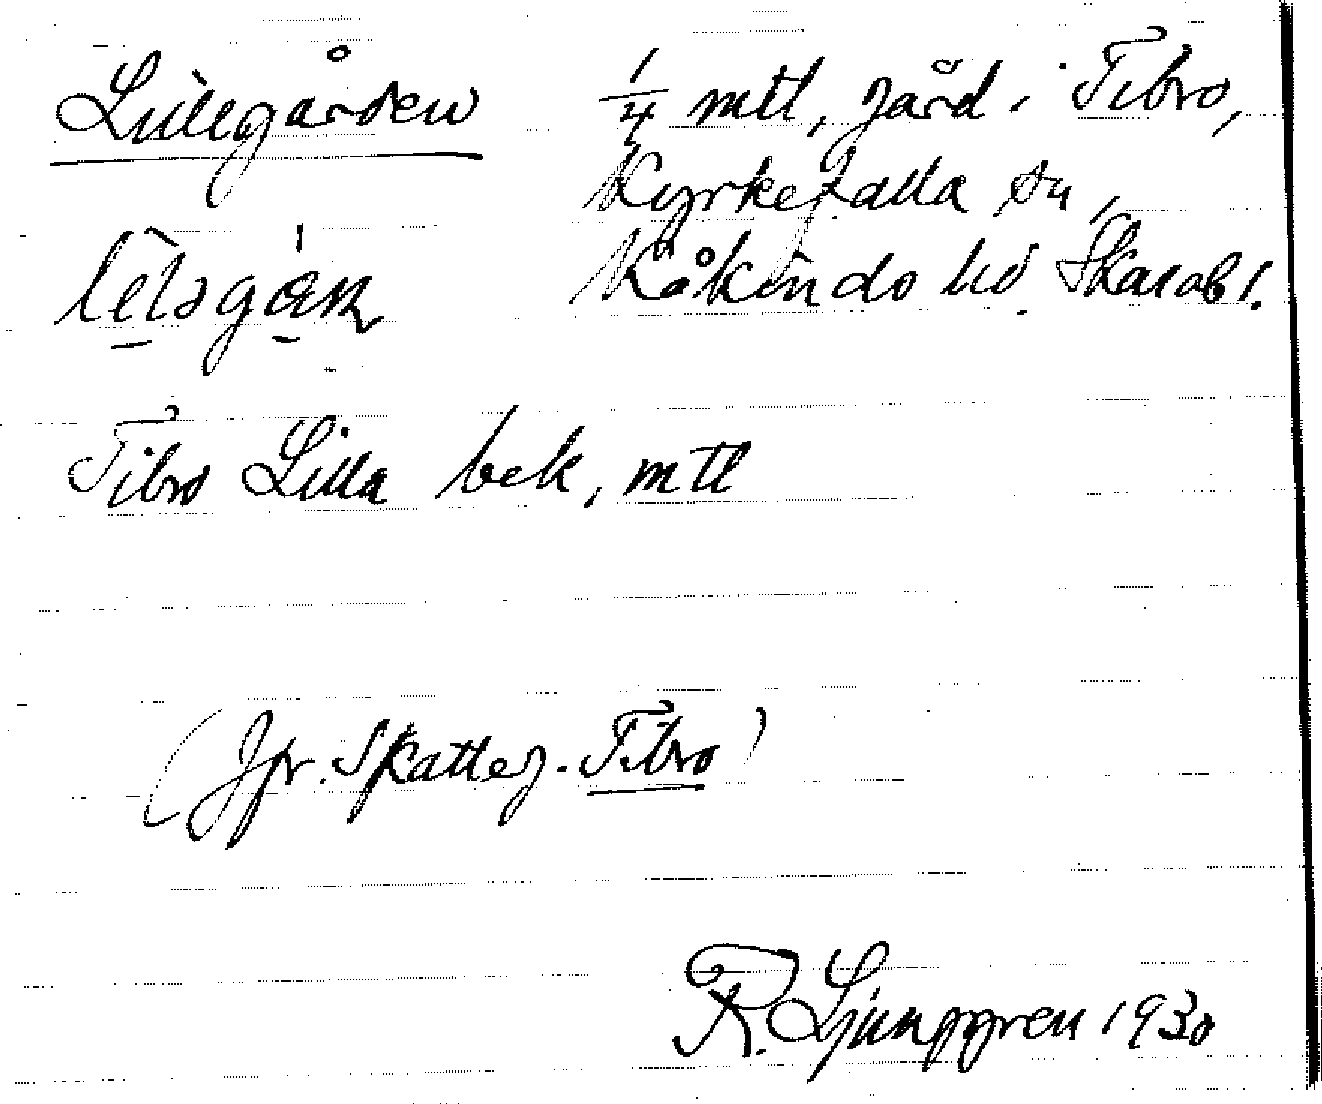 Lillegården 1/4 mtl, gård i Tibro,
Kyrkefalla sn,
Kåkinds hd Skarab l.
Tibro Lilla bek, mtl
(Jfr. Skatteg. Tibro)
R. Ljunggren 1930